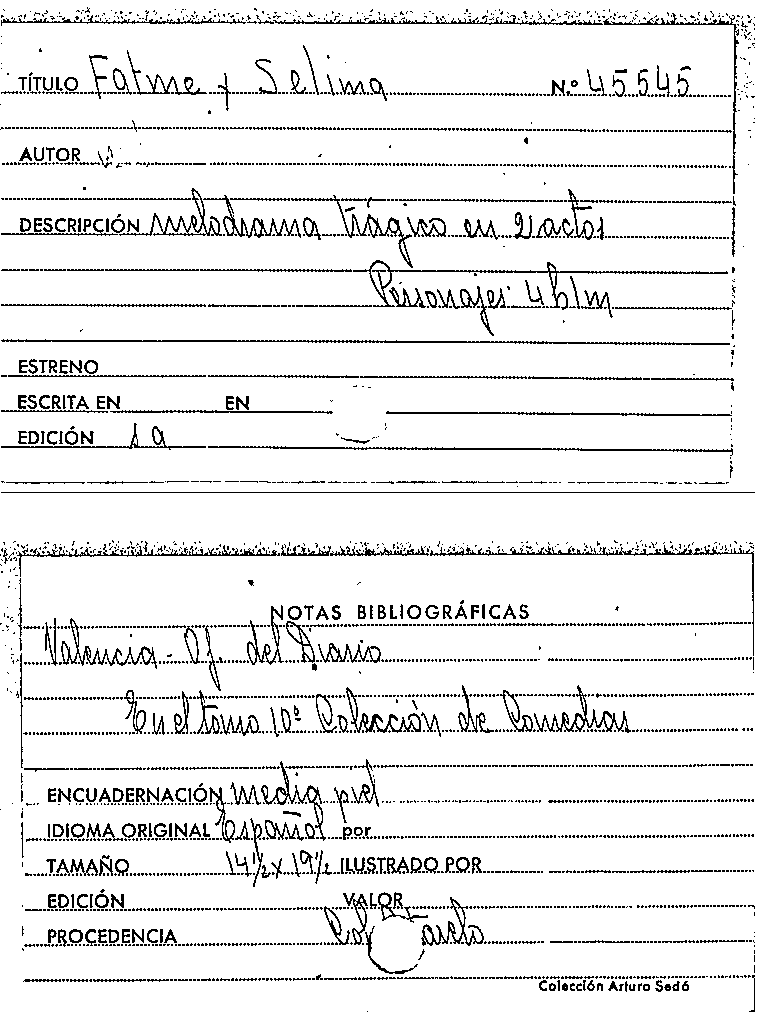 TÍTULO Fatme y Selima N.º 45545
AUTOR
DESCRIPCIÓN melodrama trágico en 2 actos
Personajes 4h1m
ESTRENO
ESCRITA EN EN
EDICIÓN 1a
NOTAS BIBLIOGRÁFICAS
Valencia - Of. del Diario
En el tomo 10º Colección de Comedias
ENCUADERNACIÓN media piel
IDIOMA ORIGINAL Español por
TAMAÑO 14½ x 19½ ILUSTRADO POR
EDICIÓN VALOR
PROCEDENCIA
Colección Arturo Sedó